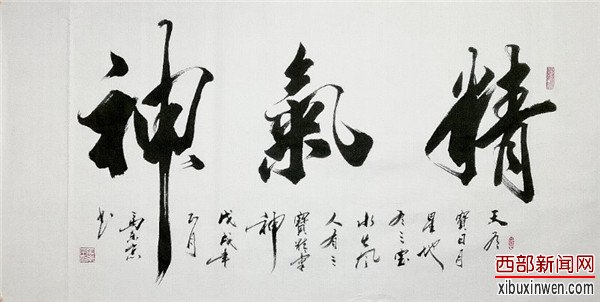 精氣神
天有
寶日月
星地
有三寶
水火風
人有三
寶精氣
神
戊戌年
月
書
西部新闻网
xibuxinwen.com